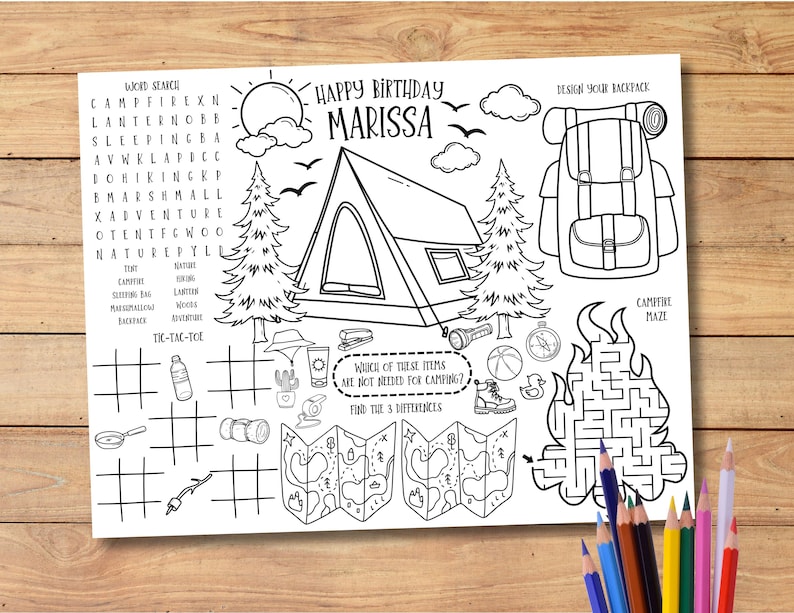 WORD SEARCH
C A M P F I R E X N
L A N T E R N O B B
S L E E P I N G B A
A V W K L A P D C C
D O H I K I N G K P
B M A R S H M A L L
X A D V E N T U R E
O T E N T F G W O O
N A T U R E P Y L D
TENT NATURE
CAMPFIRE HIKING
SLEEPING BAG LANTERN
MARSHMALLOW WOODS
BACKPACK ADVENTURE
TIC-TAC-TOE
HAPPY BIRTHDAY
MARISSA
DESIGN YOUR BACKPACK
CAMPFIRE
MAZE
WHICH OF THESE ITEMS
ARE NOT NEEDED FOR CAMPING?
FIND THE 3 DIFFERENCES